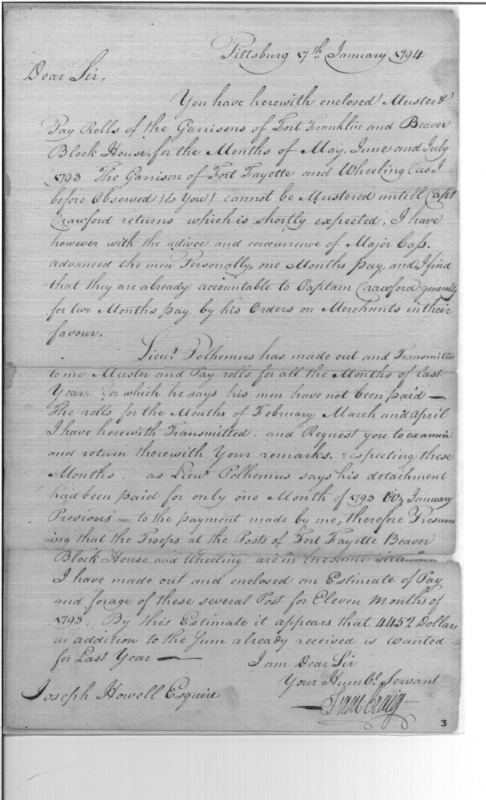 Pittsburg 7th January 1794
Dear Sir,
You have herewith enclosed Muster &
Pay Rolls of the Garrisons of Fort Franklin and Beaver
Block House, for the Months of May, June and July
1793 The Garrison of Fort Fayette and Wheeling (as I
before Observed to You) cannot be Mustered untill Capt
Crawford returns which is shortly expected, I have
however with the advice and concurrence of Major Cass.
advanced the men Personally, one Months Pay, and I find
that they are already accountable to Captain Crawford generally
for two Months pay, by his Orders on Merchants in their
favour.
Lieut. Polhemus has made out and Transmitted
to me Muster and Pay rolls for all the Months of last
Year, for which he says his men have not been paid —
The rolls for the Months of February March and april
I have herewith Transmitted, and Request you to examin
and return therewith Your remarks, respecting these
Months, as Lieut Polhemus says his detachment
had been paid for only one Month of 1793 Viz January
Previous — to the payment made by me, therefore Presum
ing that the Troops at the Posts of Fort Fayette Beaver
Block House and Wheeling are in the same
I have made out and enclosed an Estimate of Pay
and forage of these several Post for Eleven Months of
1793, By this Estimate it appears that 4452 Dollars
in addition to the Sum already received is wanted
for Last Year —
I am Dear Sir
Your Humbl. Servant
Joseph Howell Esquire
Isaac Craig
3